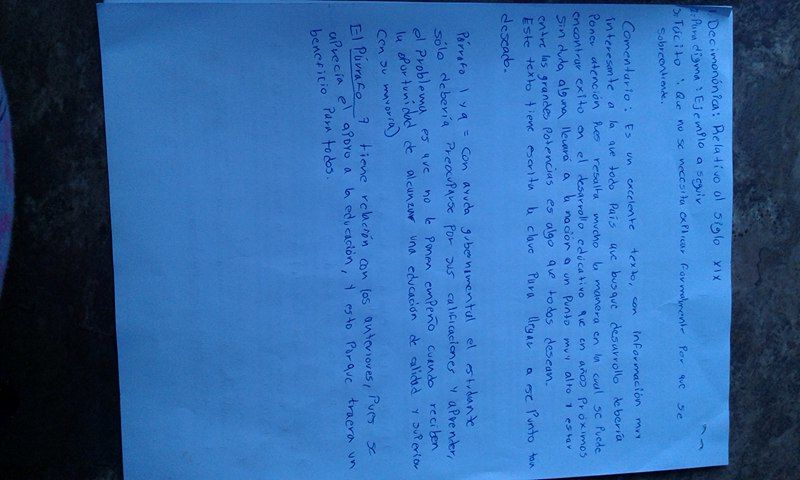 1 Decimonónica: Relativo al siglo XIX
2. Paradigma: Ejemplo a seguir
3. Tácito: Que no se necesita explicar formalmente por que se
sobreentiende.
Comentario: Es un excelente texto, con información muy
interesante a la que todo país que busque desarrollo debería
Poner atención pues resalta mucho la manera en la cual se puede
encontrar exito en el desarrollo educativo que en años Próximos
sin duda alguna llevará a la nación a un punto muy alto y estar
entre las grandes potencias es algo que todos desean.
Este texto tiene escrita la clave para llegar a ese punto tan
deseado.
Párrafo 1 y 9 = Con ayuda gubernamental el estudiante
sólo debería preocuparse por sus calificaciones y aprender,
el problema es que no le ponen empeño cuando reciben
la oportunidad de alcanzar una educación de calidad y superior
(en su mayoría)
El Párrafo 9 tiene relación con los anteriores, pues se
aprecia el apoyo a la educación, y esto porque traera un
beneficio para todos.